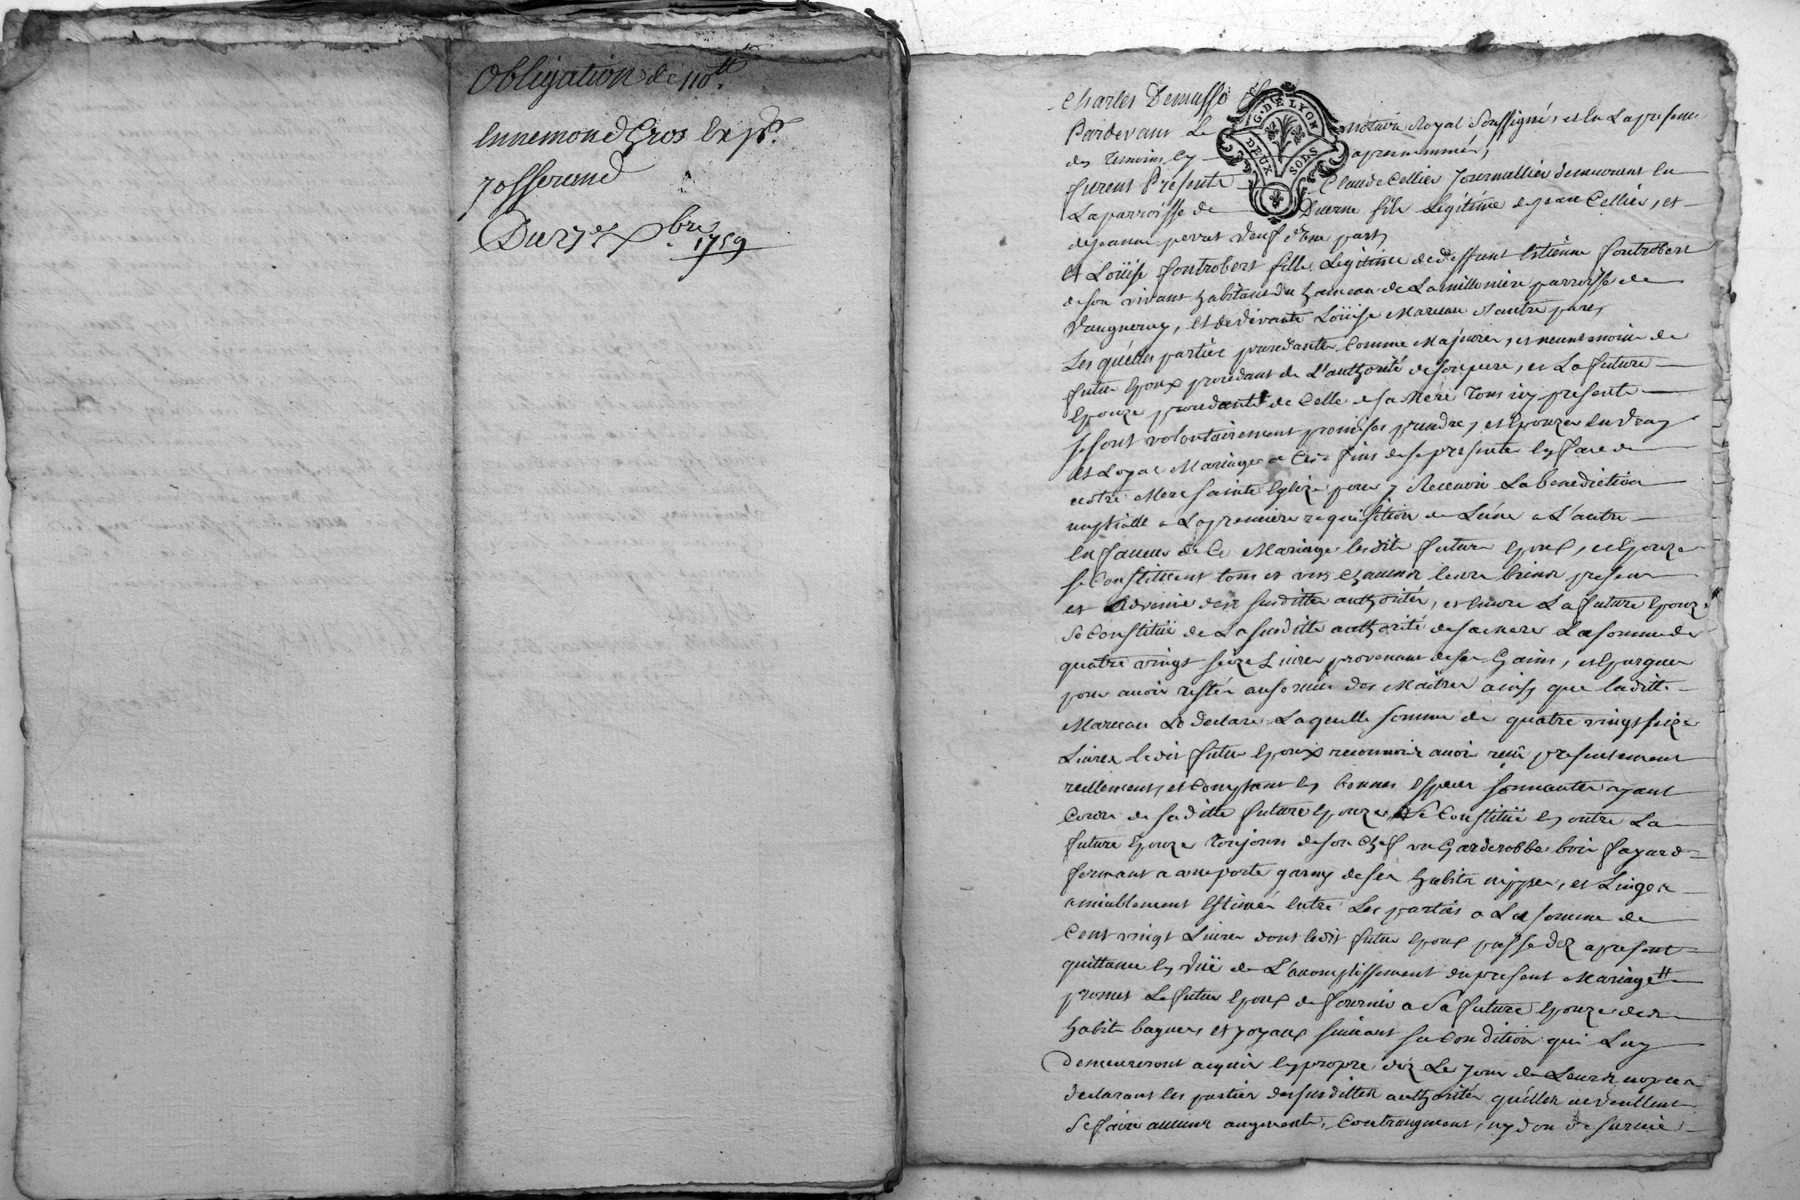 Obligation de 110ᵗᵗ.
Ennemond Gros
Josserand
Du 27ᵉ Xbre
1759
Charles Demasso
G. DE LYON
DEUX SOLS
Pardevant Le notaire Royal Soussigné, et en La presence
des Temoins En apres nommés,
furent Presents Claude Cellier Journallier demeurant En
La parroisse de Duerne fils Légitime de jean Cellier, et
de jeanne perret d'une part,
Et Loüise fontrobert fille Légitime de deffunt Estienne fontrobert
de son vivant habitant du hameau de La millonniere parroisse de
Vaugneray, et de vivante Loüise Mareau d'autre part,
Les quélles parties procedantes Comme Majeures, et neantmoins Le
futur Epoux procedant de L'authorité de son pere, et La future
Epouze procedante de Celle de sa Mere tous icy presents
se sont volontairement promis se prendre, et Epouzer en vray
et Loyal Mariage a Ces fins de se presenter En face de
notre Mere Sainte Eglize pour y Recevoir La benediction
nuptialle a La premiere requisition de L'une a L'autre
En faveur de Ce Mariage lesdits futurs Epoux, et Epouze
se Constituent tous et uns Chacuns leurs biens presents
et avenir des susdittes authorités, et encore La future Epouze
se Constitüe de La susditte authorité de sa mere La somme de
quatre vingt seize Livres provenant de ses Gains, et Epargnes
pour avoir resté au service des Maitres ainsy que laditte
Mareau Le declare Laquelle somme de quatre vingt seize
Livres Ledit futur Epoux reconnoit avoir reçû presentement
reellement, et Comptant En bonnes Especes sonnantes ayant
Cours de saditte future Epouze Se Constitüe En outre La
future Epouze toujours de son Chef un Garderobbe bois fayard
fermant a une porte garny de ses habits nippes, et Linges
amiablement Estimés Entre Les parties a La somme de
Cent vingt Livres dont ledit futur Epoux passe dez apresent
quittance En vüe de L'accomplissement du present Mariage
promet Le futur Epoux de fournir a Sa future Epouze des
habits bagues et joyaux suivant sa Condition qui Luy
demeureront acquis En propre dez Le jour de Leurs nopces
declarant les parties des susdittes authorités quélles ne veuillent
se faire aucune augment, ny don de survie